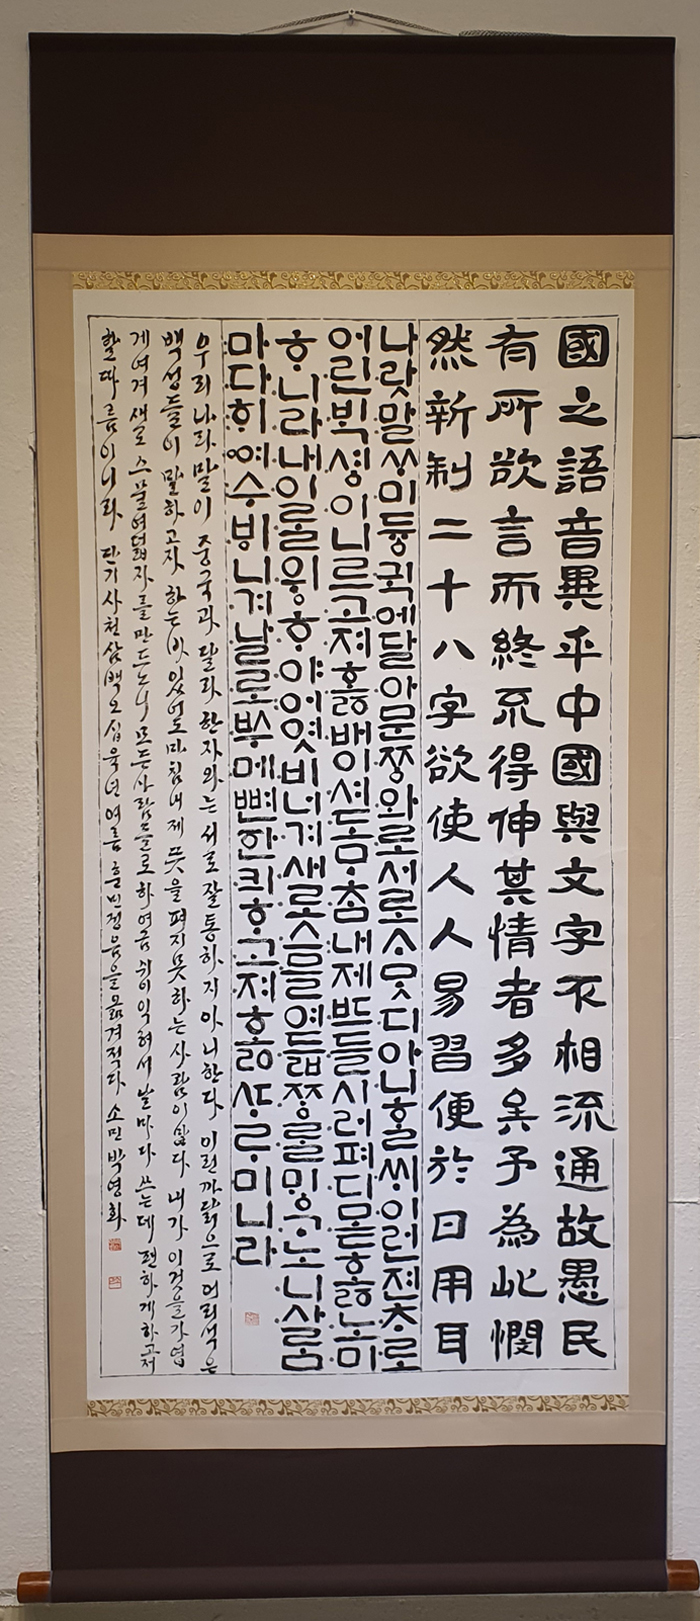 國之語音異乎中國與文字不相流通故愚民
有所欲言而終不得伸其情者多矣予為此憫
然新制二十八字欲使人人易習便於日用耳
나랏말ᄊᆞ미듕귁에달아문ᄍᆞᆼ와로서로ᄉᆞᄆᆞᆺ디아니ᄒᆞᆯᄊᆡ이런젼ᄎᆞ로
어린ᄇᆡᆨ셩이니르고져호ᇙ배이셔도ᄆᆞᄎᆞᆷ내제ᄠᅳ들시러펴디몯ᄒᆞᇙ노미
ᄒᆞ니라내이ᄅᆞᆯ윙ᄒᆞ야어엿비너겨새로스믈여듧ᄍᆞᆼᄅᆞᆯᄆᆡᇰᄀᆞ노니사ᄅᆞᆷ
마다ᄒᆡᅇᅧ수ᄫᅵ니겨날로ᄡᅮ메뼌한킈ᄒᆞ고져ᄒᆞᇙᄯᆞᄅᆞ미니라
우리나라말이 중국과 달라 한자와는 서로 잘 통하지 아니한다 이런까닭으로 어리석은
백성들이 말하고자 하는바 있어도 마침내 제 뜻을 펴지못하는 사람이 많다 내가 이것을 가엽
게 여겨 새로 스물여덟자를 만드노니 모든사람들로 하여금 쉬이 익혀서 날마다 쓰는데 편하게하고저
할따름이니라 단기사천삼백오십육년여름 훈민정음을옮겨적다 소민 박영화